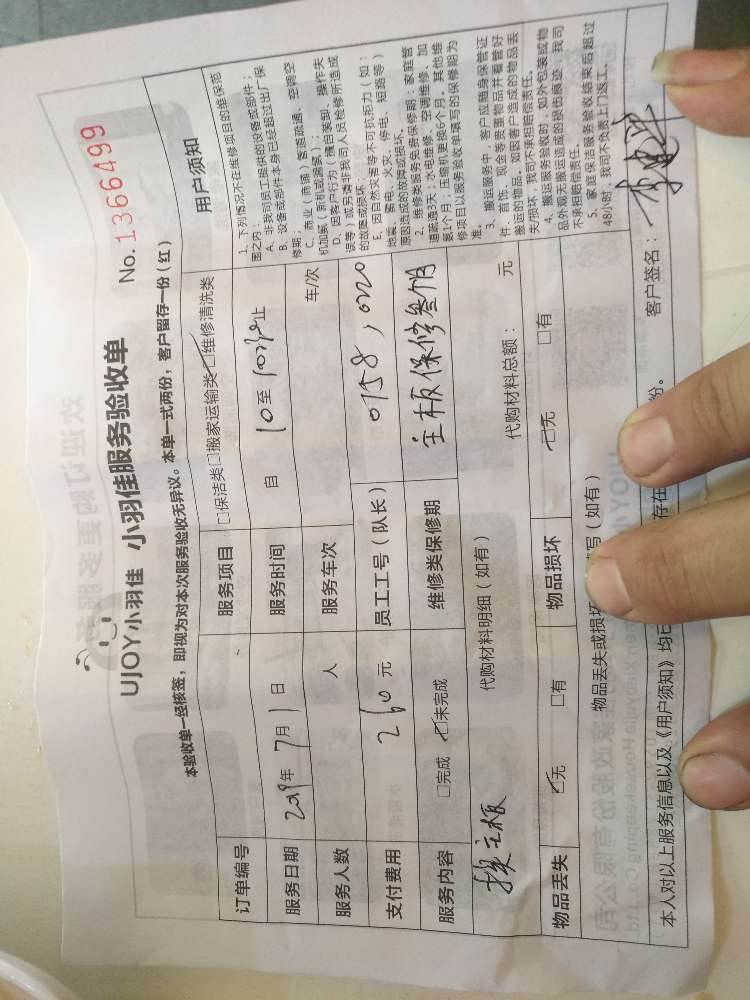 UJOY小羽佳 小羽佳服务验收单
No. 1366499
本验收单一经核签，即视为对本次服务验收无异议。本单一式两份，客户留存一份（红）
订单编号 服务项目 □保洁类□搬家运输类☑维修清洗类
服务日期 2019年7月1日 服务时间 自 10至10:30止
服务人数 人 服务车次 车/次
支付费用 260元 员工工号（队长） 0758,0720
服务内容 □完成 ☑未完成 维修类保修期 主板保修叁个月
代购材料明细（如有） 代购材料总额： 元
换主板
物品丢失 ☑无 □有 物品损坏 ☑无 □有
物品丢失或损坏 写（如有）
本人对以上服务信息以及《用户须知》均已 存在 份。 客户签名：
用户须知
1、下列情况不在维修项目的维保范
围之内：
A、非我司员工提供的设备或部件；
B、设备或部件本身已经超过出厂保
修期；
C、商业（商铺）管道疏通、空调空
机加氟（新机或漏氟）；
D、因客户行为（擅自装卸、操作失
误等）或另请非我司人员检修所造成
的故障或损坏；
E、因自然灾害等不可抗拒力（如：
地震、蓄电、火灾、停电、短路等）
原因造成的故障或损坏。
2、维修类服务免费保修期：家庭管
道疏通3天；水电维修、空调维修、加
氟1个月，压缩机更换6个月。其他维
修项目以服务验收单填写的保修期为
准。
3、搬运服务中，客户应随身保管证
件、首饰、现金等贵重物品并看管好
搬运的物品，如因客户造成的物品丢
失/损坏，我司不承担赔偿责任。
4、搬运服务验收时，如外包装或物
品外观无搬运造成的损伤痕迹，我司
不承担赔偿责任。
5、家庭保洁服务验收结束后超过
48小时，我司不负责上门返工。